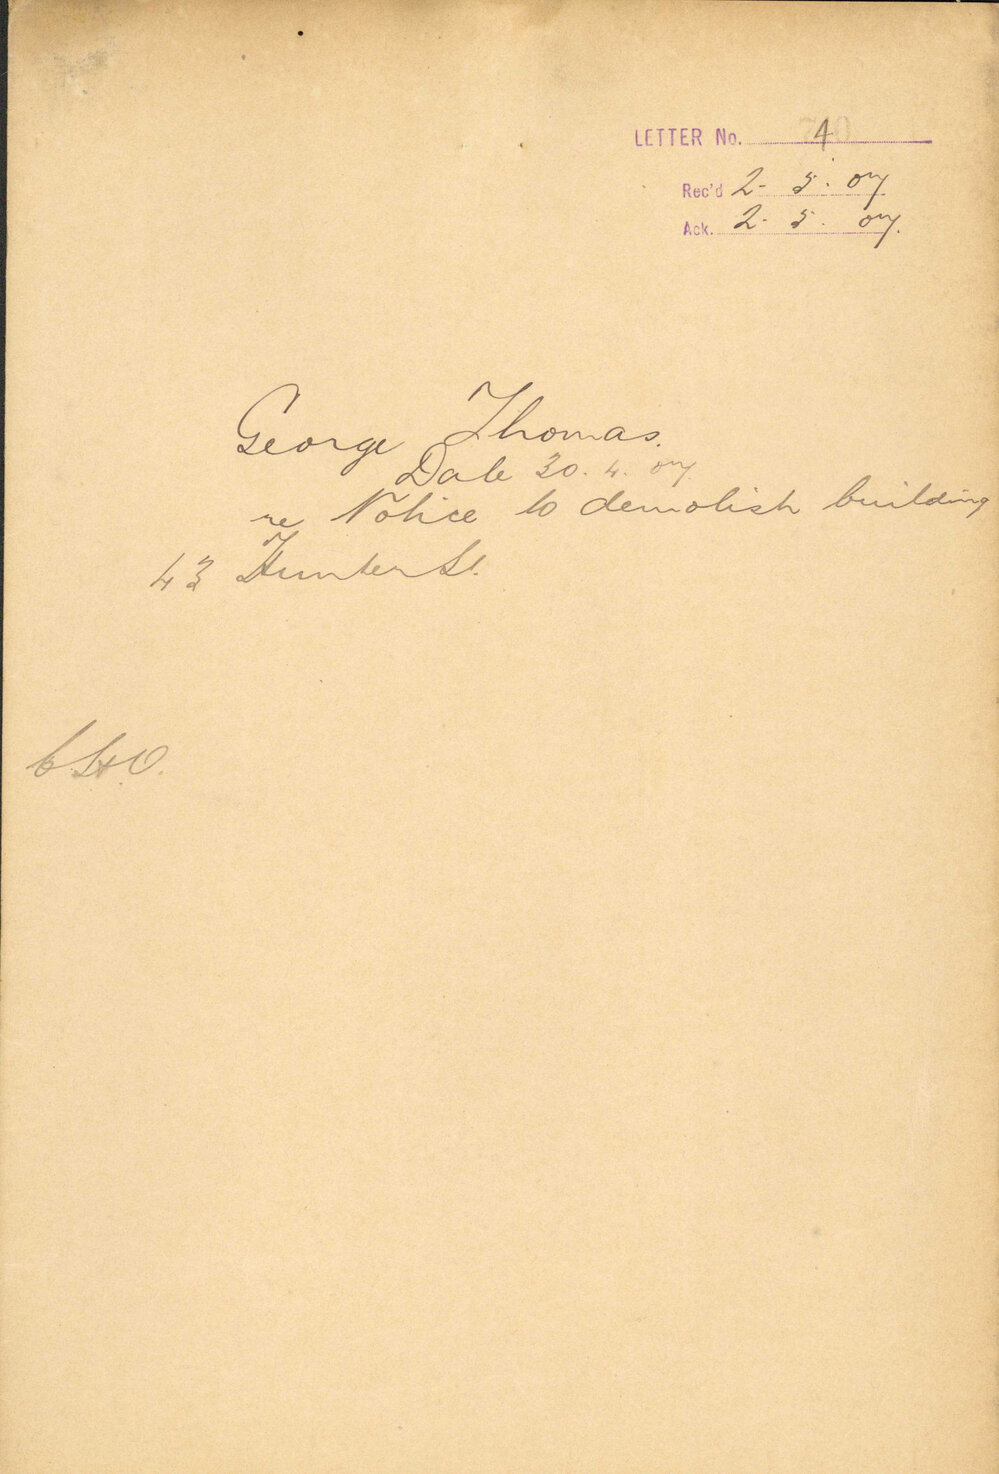 LETTER No. 4
Rec'd 2. 5. 07
Ack. 2. 5. 07.
George Thomas.
Date 30. 4. 07
re Notice to demolish building
43 Hunter St.
C.H.O.